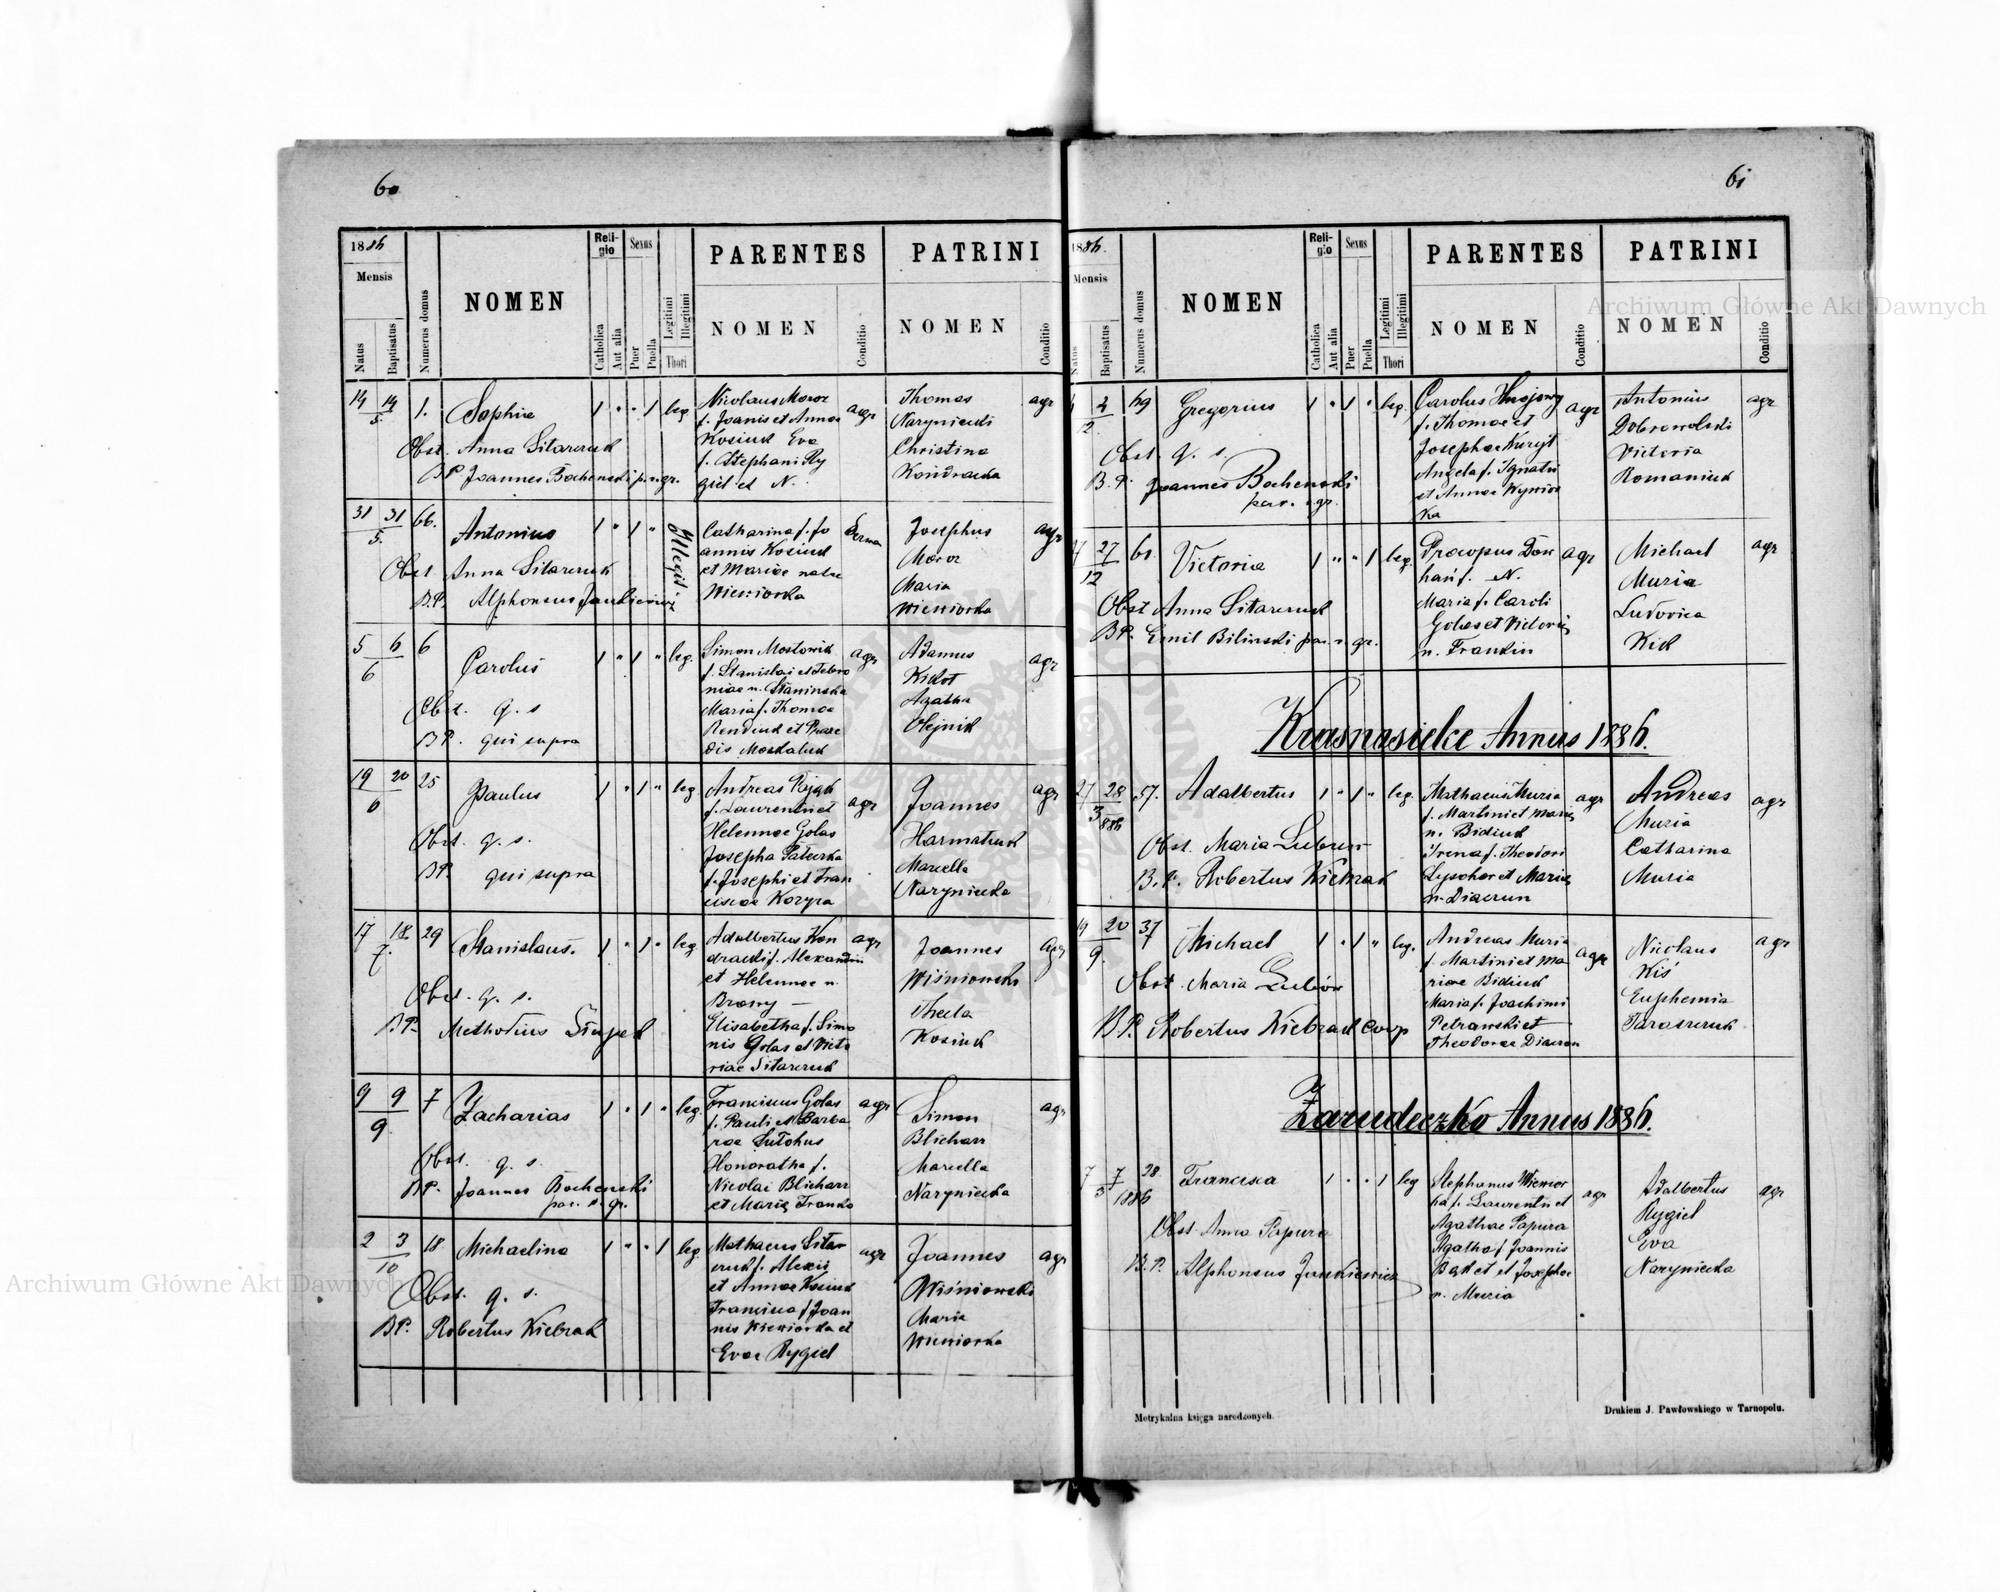 60
1886
Mensis
Natus
Baptisatus
Numerus domus
NOMEN
Religio
Catholica
Aut alia
Sexus
Puer
Puella
Legitimi
Illegitimi
Thori
PARENTES
NOMEN
Conditio
PATRINI
NOMEN
Conditio
14 14 1. Sophia 1 " " 1 leg
5.
Nicolaus Moroz
f. Joanis et Annae
Kosiuk Eva
f. Stephani Ry
giel et N.
agr
Thomas
Naryniecki
Christina
Kondracka
agr
Obst. Anna Sitarczuk
BP Joannes Bochenski p. n. gr.
31 31 66. Antonius 1 " 1 " Illegit
5.
Catharina f. Jo
annis Kosiuk
et Mariae natae
Wiewiorka
Josephus
Moroz
Maria
Wiewiorka
agr
Obst Anna Sitarczuk
B.P. Alphonsus Jankiewicz
5 6 6 Carolus 1 " 1 " leg.
6
Simon Mostowik
f. Stanislai et Febro
niae n. Staninska
Maria f. Thomae
Rendiuk et Praxe
dis Moskaluk
agr
Adamus
Agatha
Olejnik
agr
Obst. q. s
BP. qui supra
19 20 25 Paulus 1 " 1 " leg
6
Andreas Pająk
f. Laurentii et
Helennae Golas
Josepha
f. Josephi et Fran
ciscae Kozyra
agr
Joannes
Harmatiuk
Marcella
Naryniecka
agr
Obst. q. s.
BP. qui supra
17 18. 29 Stanislaus. 1 " 1 " leg
7.
Adalbertus Kon
dracki f. Alexandri
et Helennae n.
Elisabetha f. Simo
nis Golas et Victo
riae Sitarczuk
agr
Joannes
Wiśniowski
Thecla
Kosiuk
agr
Obst. q. s.
BP. Methodius
9 9 7 Zacharias 1 " 1 " leg.
9
Franciscus Golas
f. Pauli et Barba
rae
Honoratha f.
Nicolai Blicharz
et Mariae Franko
agr
Simon
Blicharz
Marcella
Naryniecka
agr
Obst. q. s.
BP. Joannes Bochenski
par. n. gr.
2 3 18 Michaelina 1 " " 1 leg
10
Mathaeus Sitar
czuk f. Alexii
et Annae Kosiuk
Francisca f. Joan
nis Wiewiorka et
Evae Rygiel
agr
Joannes
Wiśniowski
Maria
Wiewiorka
agr
Obst. q. s.
BP. Robertus Kiebzak
61
1886.
Mensis
Natus
Baptisatus
Numerus domus
NOMEN
Religio
Catholica
Aut alia
Sexus
Puer
Puella
Legitimi
Illegitimi
Thori
PARENTES
NOMEN
Conditio
PATRINI
NOMEN
Conditio
69 Gregorius 1 " 1 " leg.
12.
Carolus Hnojowy
f. Thomae et
Josephae
Angela f. Ignatii
et Annae
agr
Antonius
Dobrowolski
Victoria
Romaniuk
agr
Obst q. s.
B. P. Joannes Bochenski
par. n. gr.
27 61. Victoria 1 " " 1 leg.
12
Procopus
f. N.
Maria f. Caroli
Golas et Victoriae
n. Frankin
agr
Michael
Muzia
Ludovica
agr
Obst Anna Sitarczuk
BP. Emil Bilinski par. n. gr.
Krasnosielce Annus 1886.
27 28 57. Adalbertus 1 " 1 " leg.
3 886
Mathaeus Muzia
f. Martini et Mariae
n. Bidiuk
Irena f. Theodori
Lysohor et Mariae
n. Diaczun
agr
Andreas
Muzia
Catharina
Muzia
agr
Obst. Maria
B. P. Robertus Kiebzak
20 37 Michael 1 " 1 " leg.
9.
Andreas Muzia
f. Martini et Ma
riae Bidiuk
Maria f. Joachimi
Petrowski et
Theodorae Diaczun
agr
Nicolaus
Kiś
Euphemia
Taraszczuk
agr
Obst. Maria
BP. Robertus Kiebzak Coop
Zarudeczko Annus 1886.
7 7 28. Francisca 1 " " 1 leg
3 1886
Stephanus Wiewior
ka f. Laurentii et
Agathae Papura
Agatha f. Joannis
et Josephae
n. Muzia
agr
Adalbertus
Rygiel
Eva
Naryniecka
agr
Obst. Anna Papura
B. P. Alphonsus Jankiewicz
Metrykalna księga narodzonych.
Drukiem J. Pawłowskiego w Tarnopolu.
Archiwum Główne Akt Dawnych
Archiwum Główne Akt Dawnych